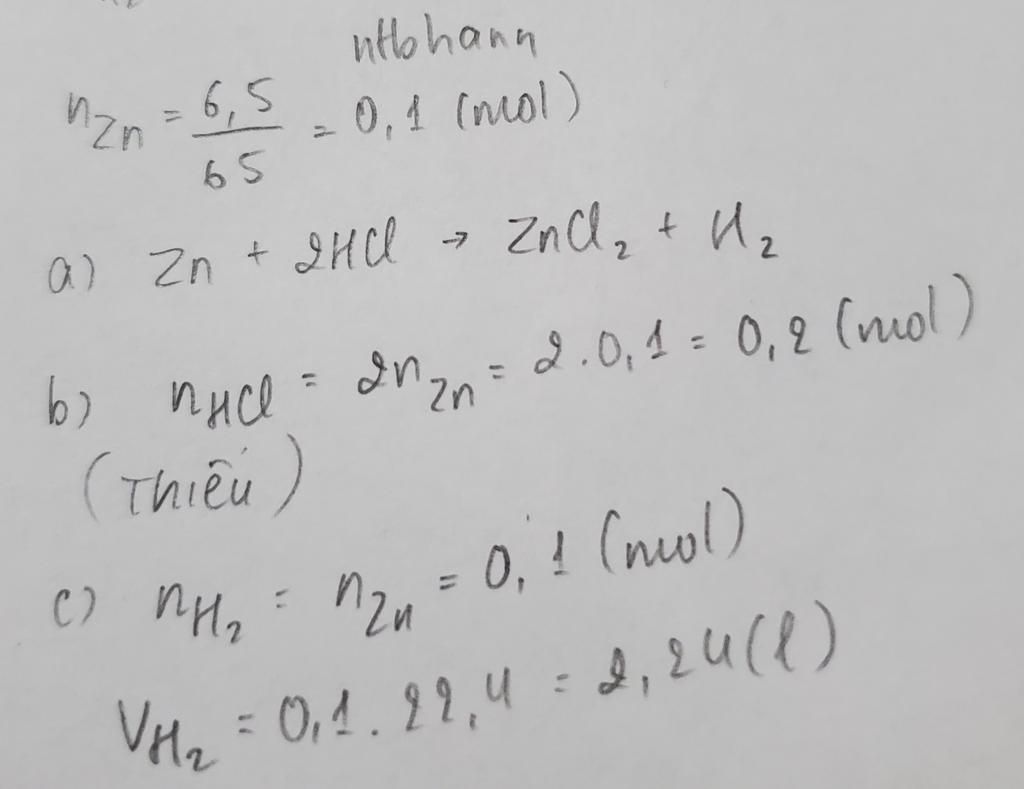 nttohann
n_Zn = 6,5/65 = 0,1 (mol)
a) Zn + 2HCl → ZnCl₂ + H₂
b) n_HCl = 2n_Zn = 2.0,1 = 0,2 (mol)
(Thiếu)
c) n_H₂ = n_Zn = 0,1 (mol)
V_H₂ = 0,1.22,4 = 2,24(l)